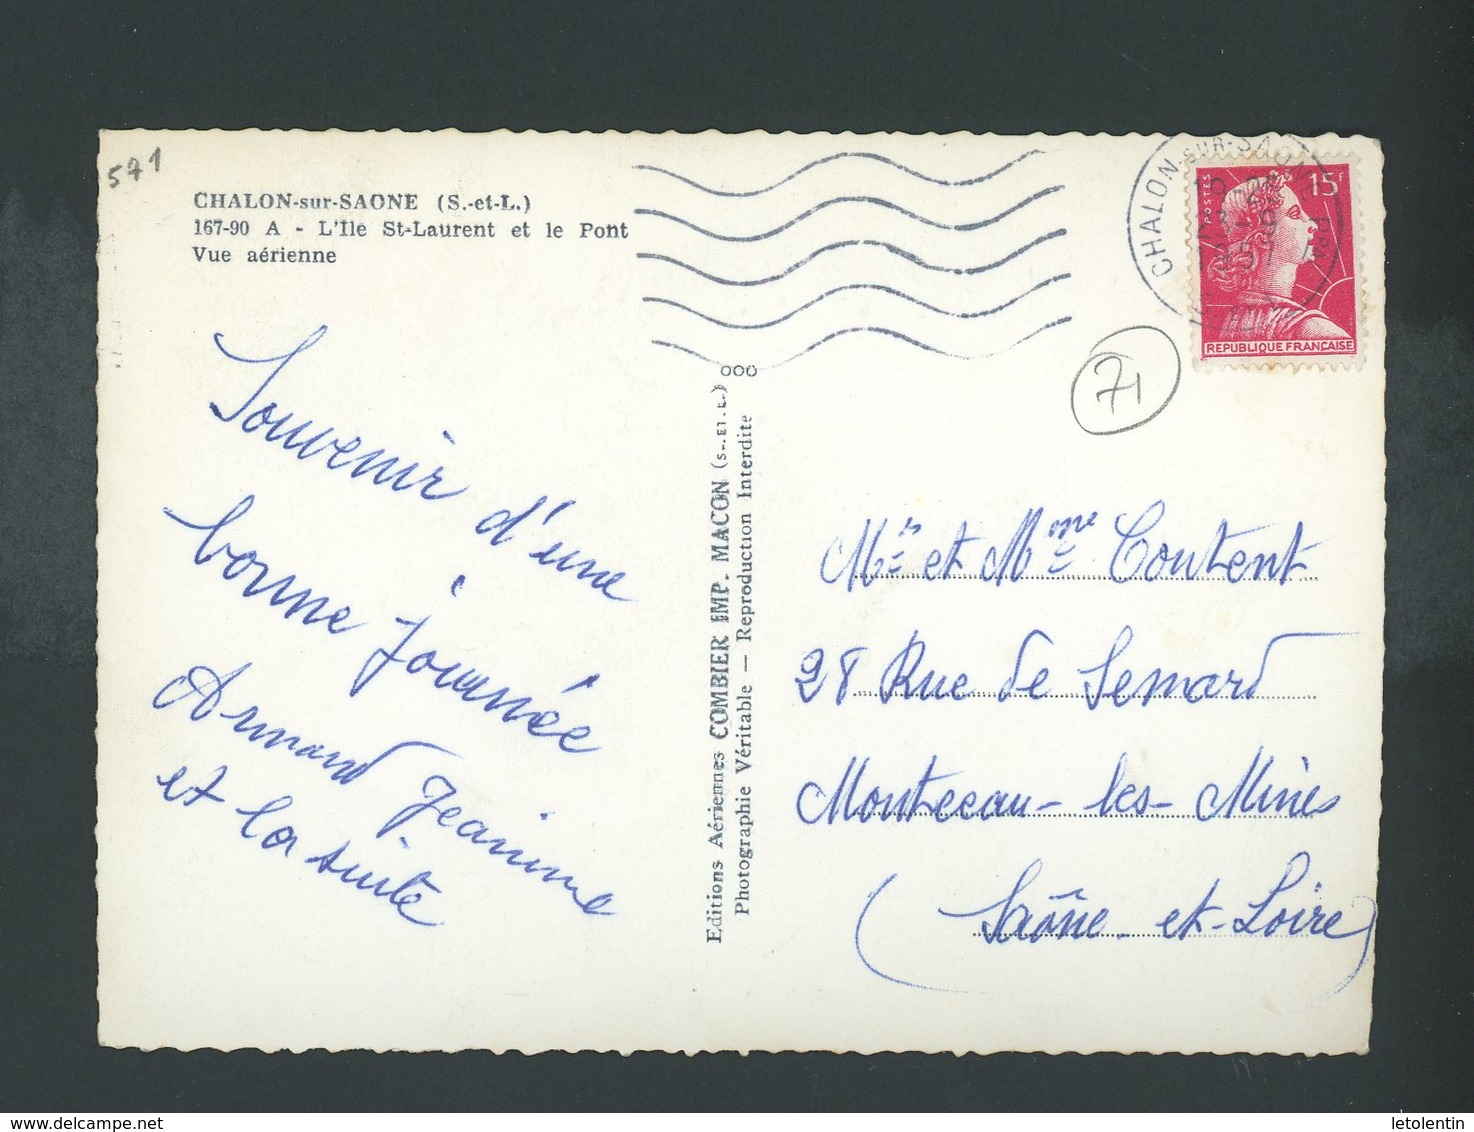 571
CHALON-sur-SAONE (S.-et-L.)
167-90 A - L'Ile St-Laurent et le Pont
Vue aérienne
Souvenir d'une
bonne journée
Armand Jeanine
et la suite
Editions Aériennes COMBIER IMP. MACON (S.-ET-L.)
Photographie Véritable — Reproduction Interdite
CHALON-SUR-SAONE
POSTES
15F
REPUBLIQUE FRANÇAISE
71
Mr et Mme Coutent
28 Rue de Semard
Montceau-les-Mines
(Saône-et-Loire)
delcampe.net
letolentin